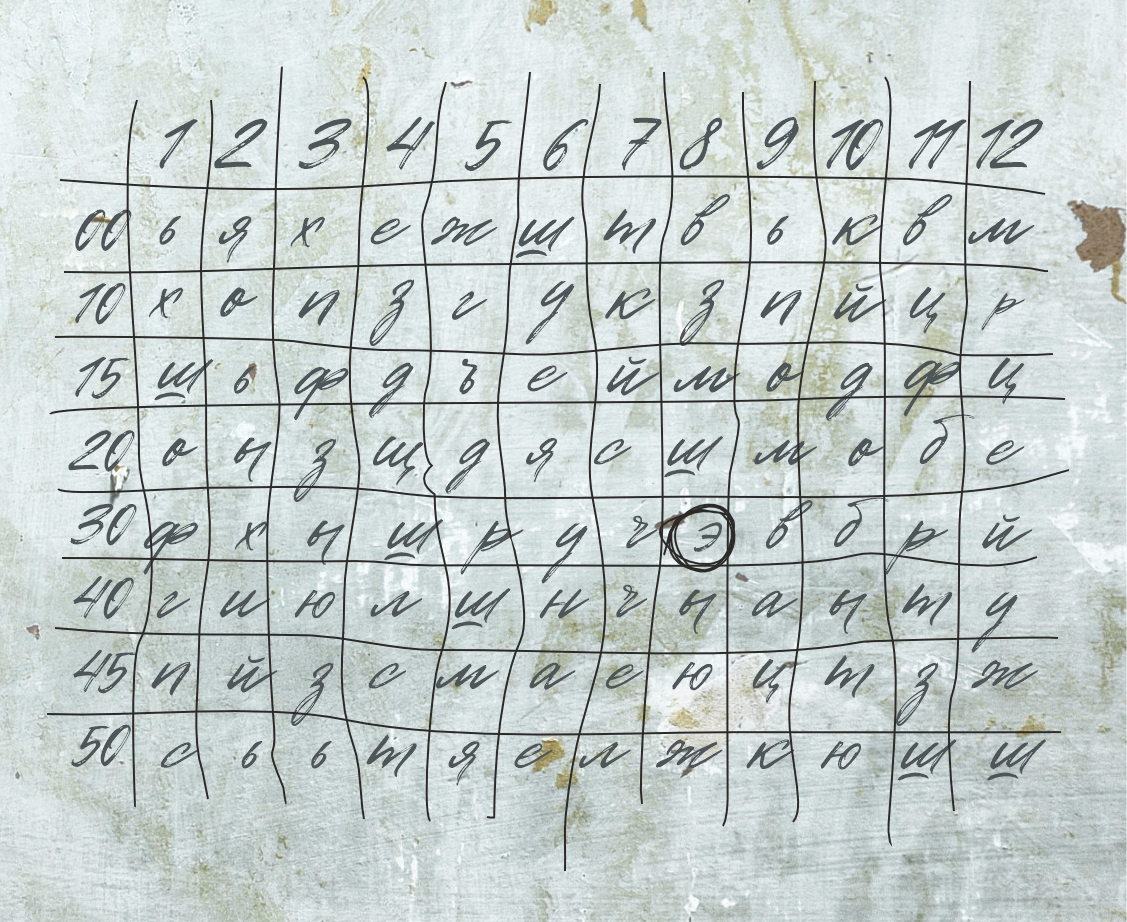 1 2 3 4 5 6 7 8 9 10 11 12
00 ь я х е ж ш т в ь к в м
10 х о п з г у к з п й ц р
15 ш ь ф д ъ е й м о д ф ц
20 о ы з щ д я с ш м о б е
30 ф х ы ш р у ч э в б р й
40 г и ю л ш н ч ы а ы т у
45 п й з с м а е ю ц т з ж
50 с ь ь т я е л ж к ю ш ш